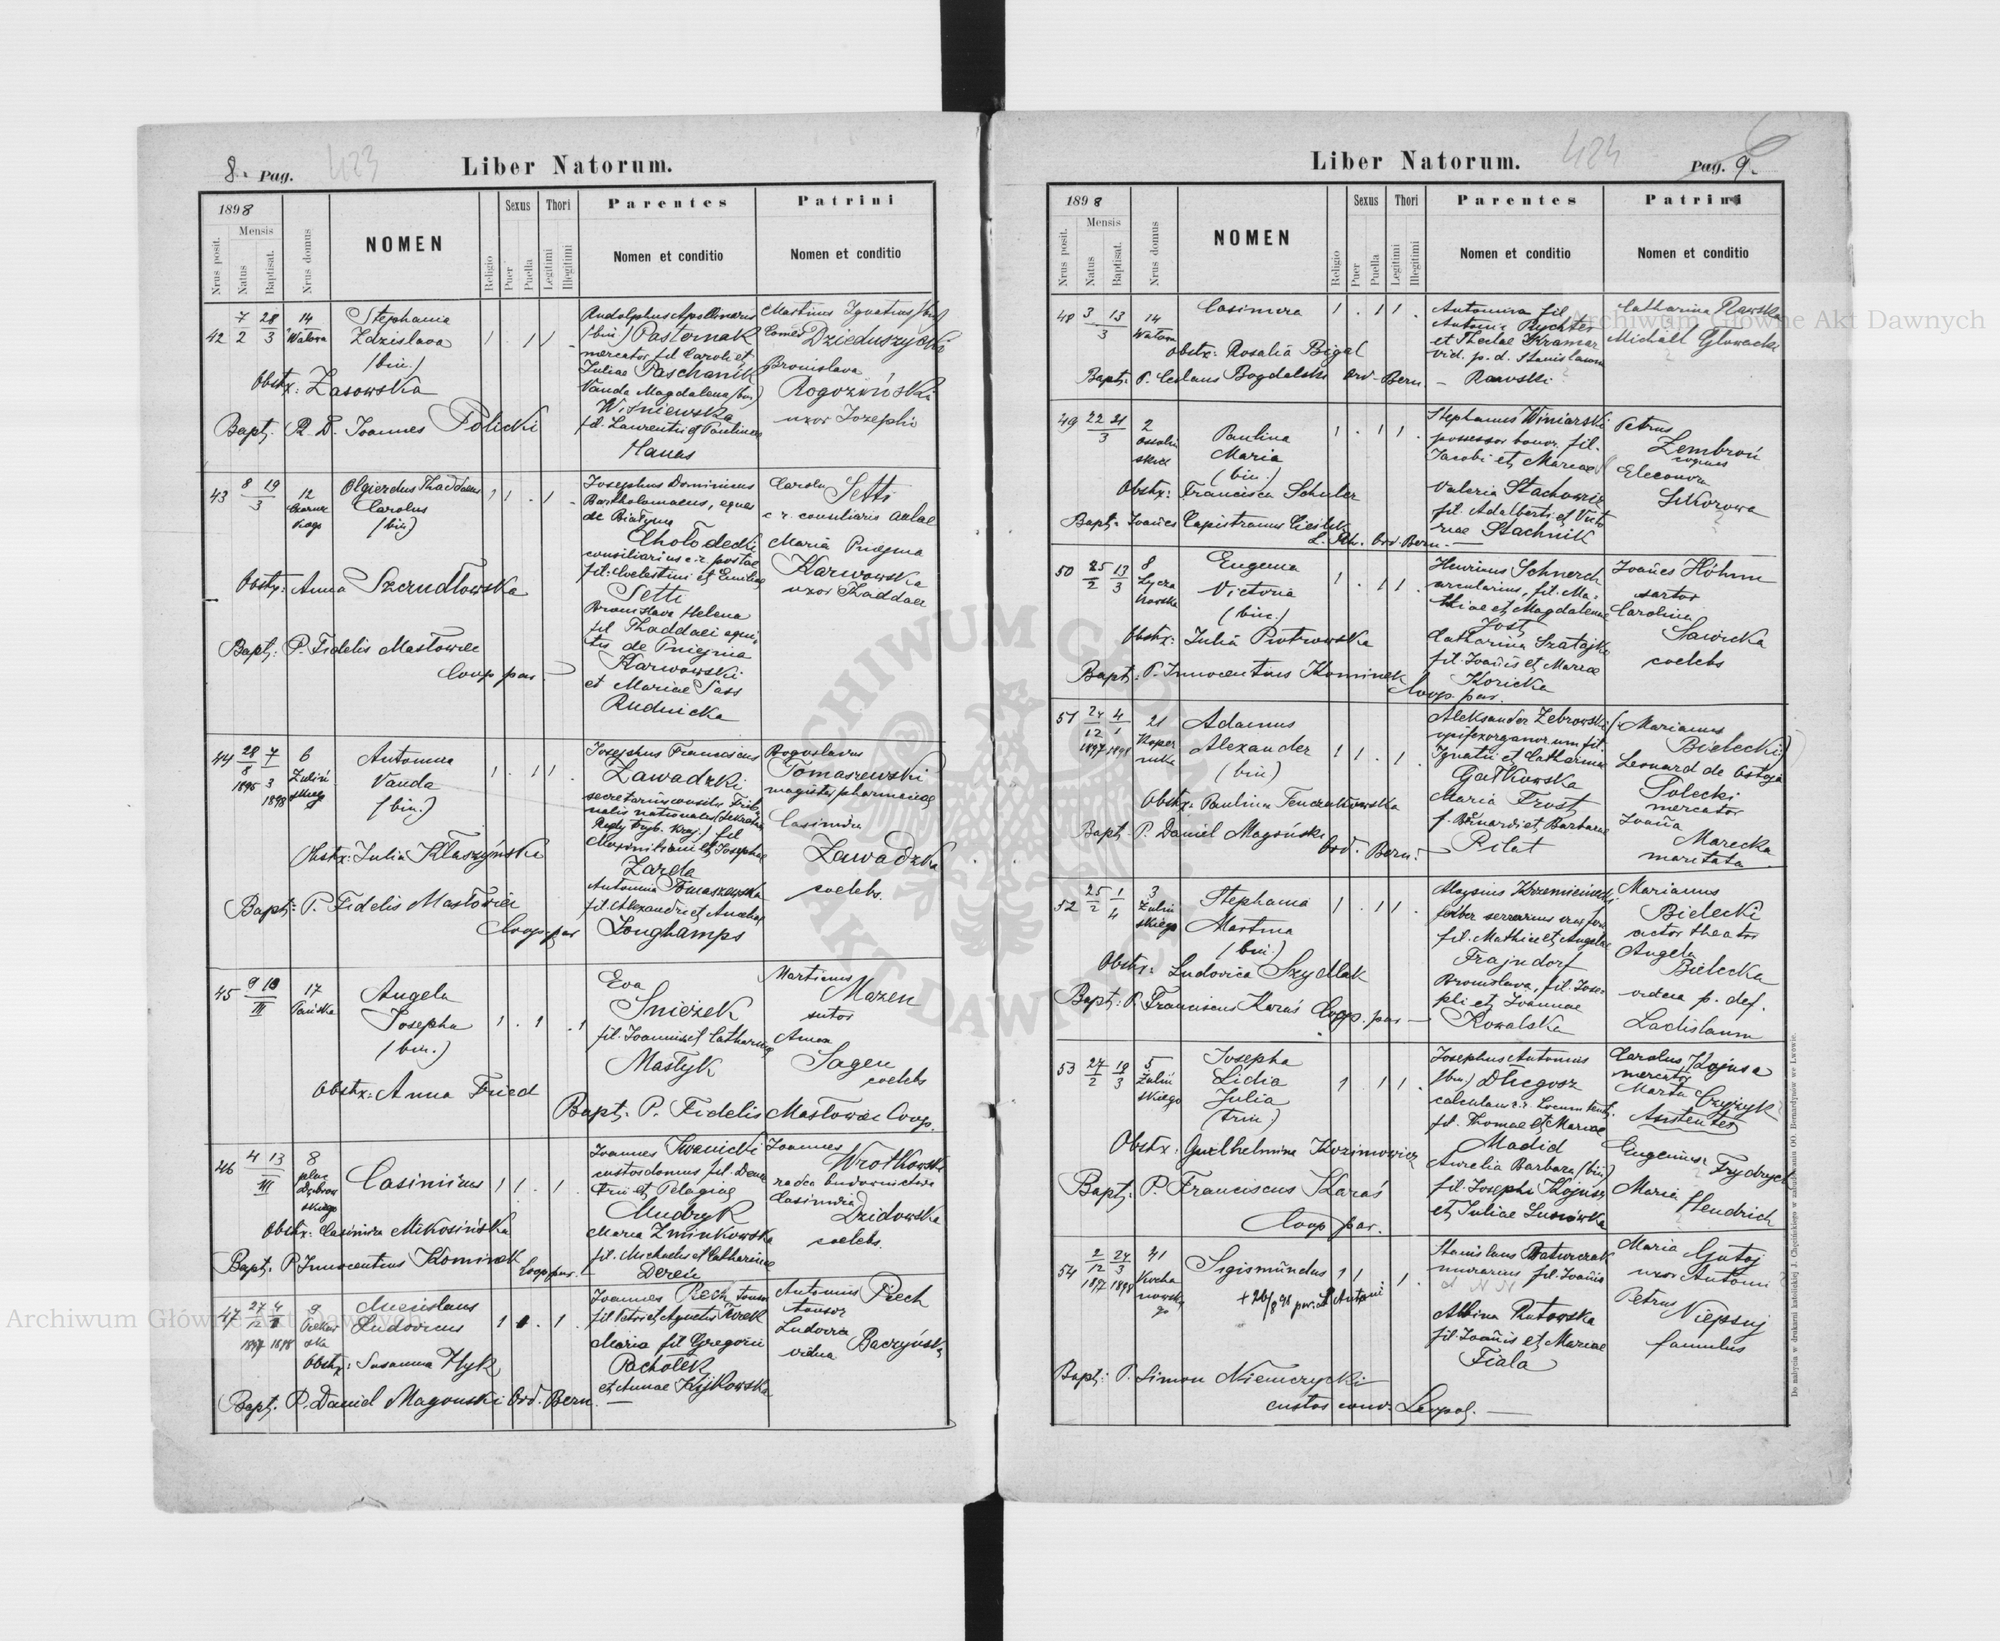 8. Pag. 423
Liber Natorum.
1898
Mensis
Nrus posit.
Natus
Baptisat.
Nrus domus
NOMEN
Religio
Sexus
Puer
Puella
Thori
Legitimi
Illegitimi
Parentes
Nomen et conditio
Patrini
Nomen et conditio
42 7/2 28/3 14
Stephania
Zdzislava
(bin.)
Obstx: Zasowska
Bapt. R. D. Joannes Policki
Rudolphus Apollinarus
(bin) Pasternak
mercator fil. Caroli et
Juliae Paschanik
Vanda Magdalena (bin)
Wiśniewska
fil. Laurentii et Paulinae
Hanas
Martinus Ignatius (bin)
Comes Dzieduszycki
Bronislava
Rogoziński
uxor Josephi
43 8 19
3
12
Olgierdus Thaddaeus
Carolus
(bin)
Obstx: Anna Szczudłowska
Bapt: P. Fidelis Masłowiec
Coop par.
Josephus Dominicus
Bartholomaeus, eques
de Białynia
Chołodecki
consiliarius c. r. postae
fil. Coelestini et Emiliae
Setti
Bronislava Helena
fil Thaddaei equi
tis de Pniejnia
Karwowski
et Mariae Sass
Rudnicka
Carolus Setti
c. r. consiliaris aulae
Maria Pniejnia
Karwowska
uxor Thaddaei
44 28/8 7/3
1895 1898
6
Zielin
skiego
Antonina
Vanda
(bin.)
Obstx: Julia Kłaszyńska
Bapt: P. Fidelis Masłowiec
Coop. par
Josephus Franciscus
Zawadzki
Maximiliani et Josephae
Zarda
Antonina Tomaszewska
fil. Alexandri et Amaliae
Longhamps
Boguslavus
Tomaszewski
magister pharmaciae
Casimira
Zawadzka
coelebs.
45 9 13
III
17
Pańska
Angela
Josepha
(bin.)
Obstx: Anna Fried
Bapt: P. Fidelis Masłowiec Coop.
Eva
Śnieżek
fil. Joannis et Catharinae
Mastyk
Martinus
Mazen
sutor
Anna
Sagen
coelebs
46 4 13
III
8
plac
Dąbrow
skiego
Casimirus
Obstx: Casimira Mikosińska
Bapt. P. Innocentius Kominek
Coop par.
Joannes Iwanicki
custos domus fil. Deme
trii et Pelagiae
Mudryk
Maria Zminkowska
fil. Michaelis et Catharinae
Dereń
Joannes
Wrotkowski
radca budownictwa
Casimira
Dzidowska
coelebs.
47 27/12 4
1897 1898
9
Piekar
ska
Miecislaus
Ludovicus
Obstx: Susanna Hyk
Bapt. P. Daniel Magonski Ord. Bern.
Joannes Piech tonsor
fil Petri et Agnetis Turek
Maria fil Gregorii
Pachołek
et Annae Kijkowska
Antonius Piech
tonsor
Ludovica
vidua Baczyńska
424
Liber Natorum.
Pag. 9.
1898
Mensis
Nrus posit.
Natus
Baptisat.
Nrus domus
NOMEN
Religio
Sexus
Puer
Puella
Thori
Legitimi
Illegitimi
Parentes
Nomen et conditio
Patrini
Nomen et conditio
48 3 13
3
14
Casimira
Obstx: Rosalia Bigal
Bapt: P. Ceslaus Bogdalski Ord. Bern.
Antonina fil
Antonii Rychter
et Theclae Kramar
vid. p. d. Stanislaum
Rawski
Catharina Rawska
Michaël Głowacki
49 22 21
3
2
Ossoliń
skich
Paulina
Maria
(bin.)
Obstx: Francisca Schuler
Bapt. Joañes Capistranus Cieślik
Ord. Bern.
Stephanus Winiarski
possessor bonor. fil.
Jacobi et Mariae
Valeria Stachowicz
fil. Adalberti et Victo
riae Stachnik
Petrus
Zembroń
Eleonora
Sikorowa
50 25/2 13/3
8
Łycza
kowska
Eugenia
Victoria
(bin.)
Obstx: Julia Piotrowska
Bapt: P. Innocentius Kominek
Coop. par
Henricus Schnerch
arcularius, fil. Ma-
thiae et Magdalenae
Jost
Catharina Szatajko
fil. Joañis et Mariae
Koricka
Joañes Höhm
sartor
Carolina
Sawicka
coelebs
51 24/12 4/1
1897 1898
21
Koper
nika
Adamus
Alexander
(bin)
Obstx: Paulina Tenczakowska
Bapt. P. Daniel Magoński
Ord. Bern.
Aleksander Zebrowski
opifex organor. um fil.
Ignatii et Catharinae
Gałkowska
Maria Frost
f. Bernardi et Barbarae
Pilat
(Marianus
Bielecki)
Leonard de Ostoja
Solecki
mercator
Joaña
Marecka
maritata
52 25/2 1/4
3
Zielin
skiego
Stephania
Martina
(bin)
Obstx: Ludovica Szydlak
Bapt: P. Franciscus Karaś Coop. par
Aloysius Krzemieniecki
faber serrarius
fil. Mathiae et Angelae
Frajndorf
Bronislava, fil. Jose-
phi et Joannae
Kowalska
Marianus
Bielecki
actor theatr
Angela
Bielecka
vidua p. def.
Ladislaum
53 27/2 18/3
5
Zieliń
skiego
Josepha
Lidia
Julia
(trin.)
Obstx. Guilhelmina Kozimowicz
Bapt: P. Franciscus Karaś
Coop par.
Josephus Antonius
(bin) Długosz
fil. Thomae et Mariae
Madid
Aurelia Barbara (bin)
fil. Josephi Kojusz
et Juliae
Carolus Kojusa
mercator
Marta Czyżyk
Assistentes
Eugenius Frydrych
Maria
Hendrich
54 2/12 24/3
1897 1898
41
Kocha
nowskie
go
Sigismundus
Stanislaus Maturczak
murarius fil. Joañis
Albina Rutowska
fil. Joañis et Mariae
Fiala
Bapt: P. Simon Niemczycki
custos conv. Leopol.
Maria Gutaj
uxor Antonii
Petrus
Niepsuj
famulus
Do nabycia w drukarni katolickiej J. Chęcińskiego w zabudowaniu OO. Bernardynów we Lwowie.
Archiwum Główne Akt Dawnych
Archiwum Główne Akt Dawnych
ARCHIWUM GŁÓWNE
AKT DAWNYCH